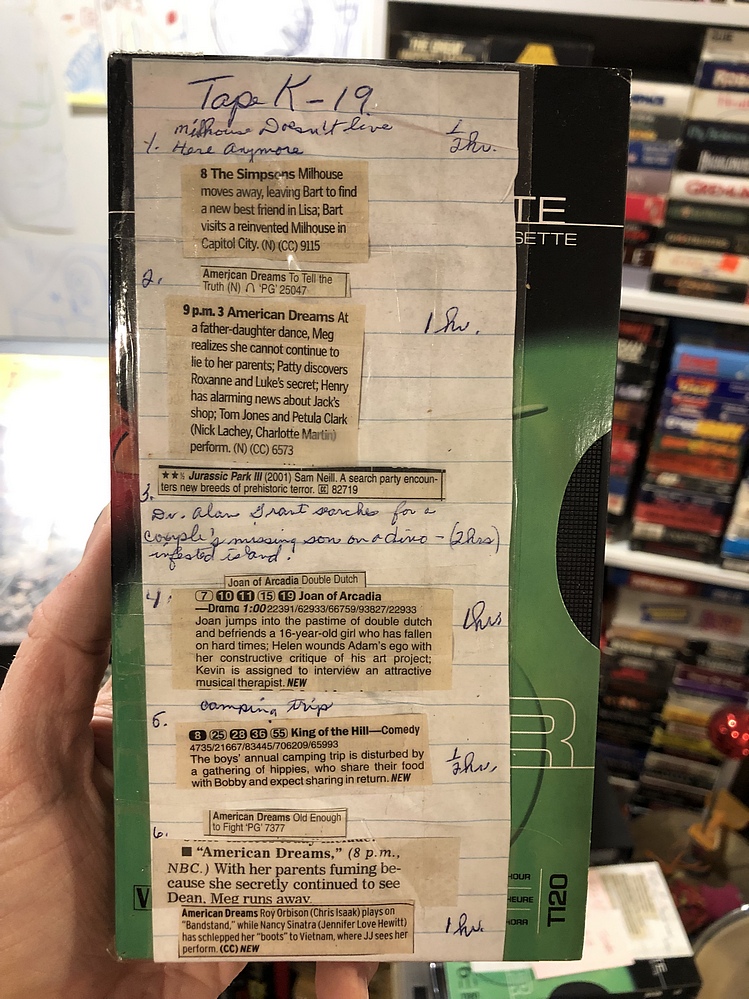 Tape K-19
Milhouse Doesn't live
1. Here Anymore
1/2 hr.
8 The Simpsons Milhouse
moves away, leaving Bart to find
a new best friend in Lisa; Bart
visits a reinvented Milhouse in
Capitol City. (N) (CC) 9115
2.
American Dreams To Tell the
Truth (N) 'PG' 25047
9 p.m. 3 American Dreams At
a father-daughter dance, Meg
realizes she cannot continue to
lie to her parents; Patty discovers
Roxanne and Luke's secret; Henry
has alarming news about Jack's
shop; Tom Jones and Petula Clark
(Nick Lachey, Charlotte Martin)
perform. (N) (CC) 6573
1 hr.
★★½ Jurassic Park III (2001) Sam Neill. A search party encoun-
ters new breeds of prehistoric terror. CC 82719
3.
Dr. Alan Grant searches for a
couple's missing son on a dino - (2hrs)
infested island.
4.
Joan of Arcadia Double Dutch
7 10 11 15 19 Joan of Arcadia
—Drama 1:00 22391/62933/66759/93827/22933
Joan jumps into the pastime of double dutch
and befriends a 16-year-old girl who has fallen
on hard times; Helen wounds Adam's ego with
her constructive critique of his art project;
Kevin is assigned to interview an attractive
musical therapist. NEW
1hr.
camping trip
5.
8 25 28 36 55 King of the Hill—Comedy
4735/21667/83445/706209/65993
The boys' annual camping trip is disturbed by
a gathering of hippies, who share their food
with Bobby and expect sharing in return. NEW
1/2 hr.
6.
American Dreams Old Enough
to Fight 'PG' 7377
■ "American Dreams," (8 p.m.,
NBC.) With her parents fuming be-
cause she secretly continued to see
Dean, Meg runs away.
American Dreams Roy Orbison (Chris Isaak) plays on
"Bandstand," while Nancy Sinatra (Jennifer Love Hewitt)
has schlepped her "boots" to Vietnam, where JJ sees her
perform. (CC) NEW
1 hr.
TE
SETTE
R
V
HOUR
HEURE
HORA
T120